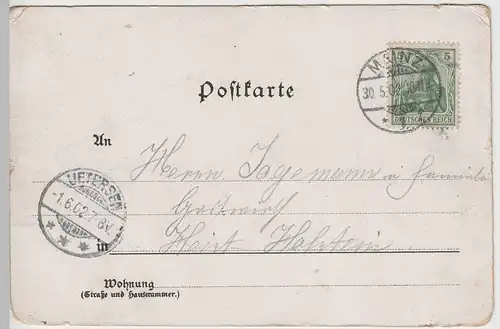 MAINZ
30.5.02
5
DEUTSCHES REICH
Postkarte
An
Herrn Tagemann u Familie
Gastwirt
UETERSEN
-1.6.02.7-8V.
in Haist Holstein
Wohnung
(Straße und Hausnummer.)